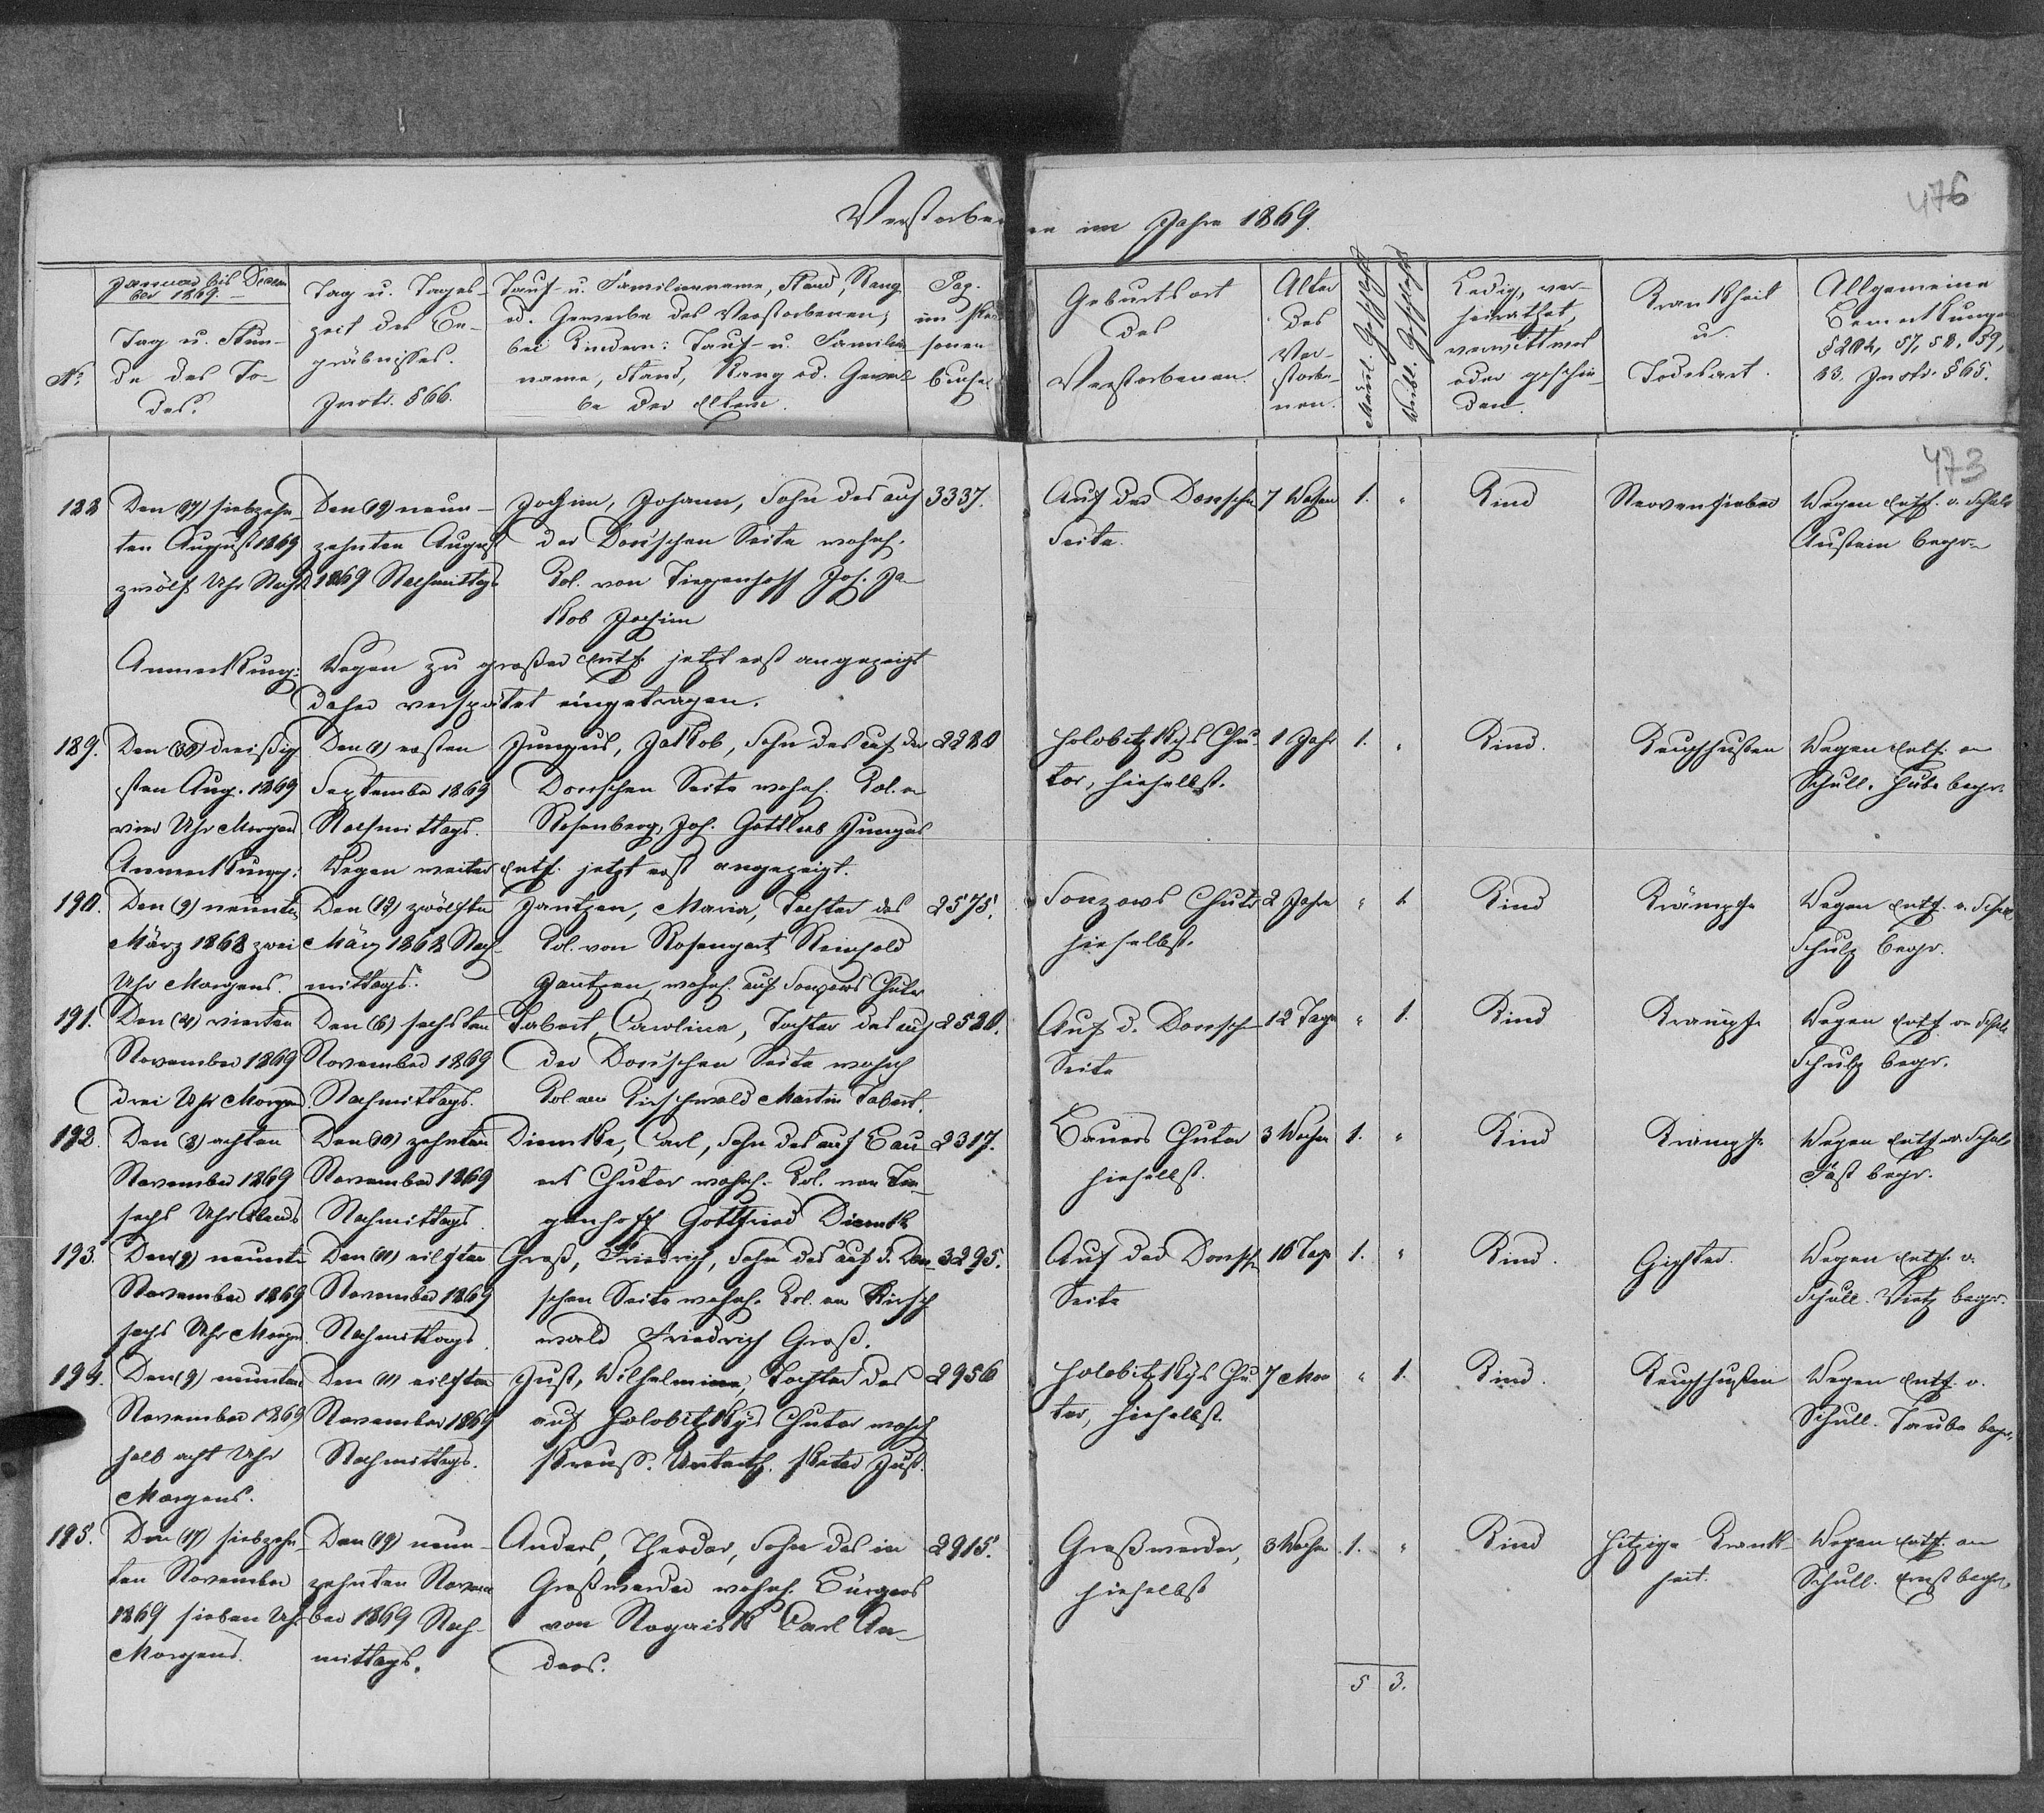 Verstorbenen im Jahre 1869.
476
Januar bis Decem
ber 1869.
No
Tag u. Stun-
de des To-
des.
Tag u. Tages-
zeit des Be-
gräbnisses.
Instr. § 66.
Tauf- u. Familienname, Stand, Rang
od. Gewerbe des Verstorbenen;
bei Kindern: Tauf- u. Familien
name, Stand, Rang od. Gewer-
be der Eltern.
Pag.
im Per
sonen
buche
Geburtsort
des
Verstorbenen.
Alter
des
Ver-
storbe-
nen.
Männl. Geschlecht
Weibl. Geschlecht
Ledig, ver-
heirathet,
verwittwet
oder geschie-
den.
Krankheit
u.
Todesart.
Allgemeine
Bemerkungen
§ 65.
473
188
Den (17) siebzehn-
ten August 1869
zwölf Uhr Nachts
Den (19) neun-
zehnten August
1869 Nachmittags
Jochim, Johann, Sohn des auf
der Don'schen Seite wohnh.
Col. von Tiegenhoff Joh. Ja-
kob Jochim
3337.
Auf der Donschen
Seite.
7 Wochen
1.
"
Kind
Nervenfieber
Wegen Entf. v. Schulz
Anstein begr.
Anmerkung: Wegen zu großer Entf. jetzt erst angezeigt
daher verspätet eingetragen.
189.
Den (30) dreißig
sten Aug. 1869
vier Uhr Morgens
Den (1) ersten
September 1869
Nachmittags.
Jungus, Jakob, Sohn des auf der
Donschen Seite wohnh. Col. v.
Rosenberg, Joh. Gottlieb Jungus
2220
Holobitzkys Chu-
tor, hieselbst.
1 Jahr
1.
"
Kind.
Keuchhusten
Wegen Entf. v.
Schull. Hube begr.
Anmerkung: Wegen weiter Entf. jetzt erst angezeigt.
190.
Den (9) neunten
März 1868 zwei
Uhr Morgens.
Den (12) zwölften
März 1868 Nach-
mittags.
Jantzen, Maria, Tochter des
Col. von Rosengart Reinhold
Jantzen, wohnh. auf Sonzows Chutor
2575.
Sonzows Chutor
hieselbst.
2 Jahre
"
1.
Kind
Krämpfe
Wegen Entf. v. Schull.
Schulz begr.
191.
Den (4) vierten
November 1869
drei Uhr Morgens
Den (6) sechsten
November 1869
Nachmittags.
Tabert, Carolina, Tochter des auf
der Don'schen Seite wohnh
Col. von Kirschwald Martin Tabert.
2520.
Auf d. Donsch
Seite
12 Tage
"
1.
Kind
Krämpfe
Wegen Entf. v. Schull.
Schulz begr.
192.
Den (8) achten
November 1869
sechs Uhr Abends
Den (10) zehnten
November 1869
Nachmittags
Diemke, Carl, Sohn des auf Bau
ers Chutor wohnh. Col. von Tie-
genhoff Gottfried Diemk
2317.
Bauers Chutor
hieselbst.
3 Wochen
1.
"
Kind
Krämpfe
Wegen Entf. v. Schull
Fast begr.
193.
Den (9) neunten
November 1869
sechs Uhr Morgens.
Den (11) eilften
November 1869
Nachmittags.
Groß, Friedrich, Sohn des auf d. Don-
schen Seite wohnh. Col. von Kirsch
wald Friedrich Groß.
3295.
Auf der Donsch
Seite
16 Tage
1.
"
Kind.
Gichter.
Wegen Entf. v.
Schull. Vietz begr.
194.
Den (9) neunten
November 1869
halb acht Uhr
Morgens.
Den (11) eilften
November 1869
Nachmittags.
Just, Wilhelmine, Tochter des
auf Holobitzkys Chutor wohnh
Preuss. Unterth. Peter Just.
2956
Holobitzkys Chu
tor, hieselbst.
7 Mon
"
1.
Kind.
Keuchhusten
Wegen Entf. v.
Schull. Taube begr.
195.
Den (17) siebzehn-
ten November
1869 sieben Uhr
Morgens.
Den (19) neun-
zehnten Novem
ber 1869 Nach-
mittags.
Anders, Theodor, Sohn des in
Großwerder wohnh. Bürgers
von Nogaisk Carl An-
ders.
2915.
Großwerder,
hieselbst
3 Wochen
1.
"
Kind
Hitzige Krank-
heit.
Wegen Entf. von
Schull. Ernst begr.
5
3.